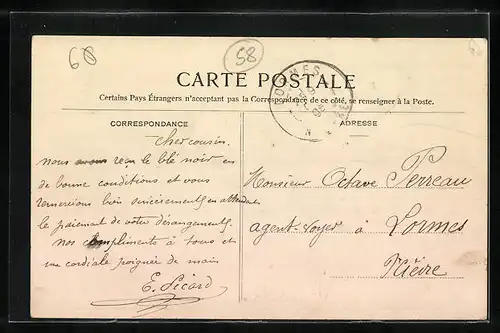 60
58
CARTE POSTALE
Certains Pays Étrangers n'acceptant pas la Correspondance de ce côté, se renseigner à la Poste.
CORRESPONDANCE
ADRESSE
LORMES
Cher cousin.
Nous avons reçu le blé noir en
de bonne conditions et vous
remercions bien sincèrement, en attendant
le paiement de votre dérangement.
Nos compliments à tous et
une cordiale poignée de main
E. Picard
Monsieur Octave Perreau
agent-voyer à Lormes
Nièvre